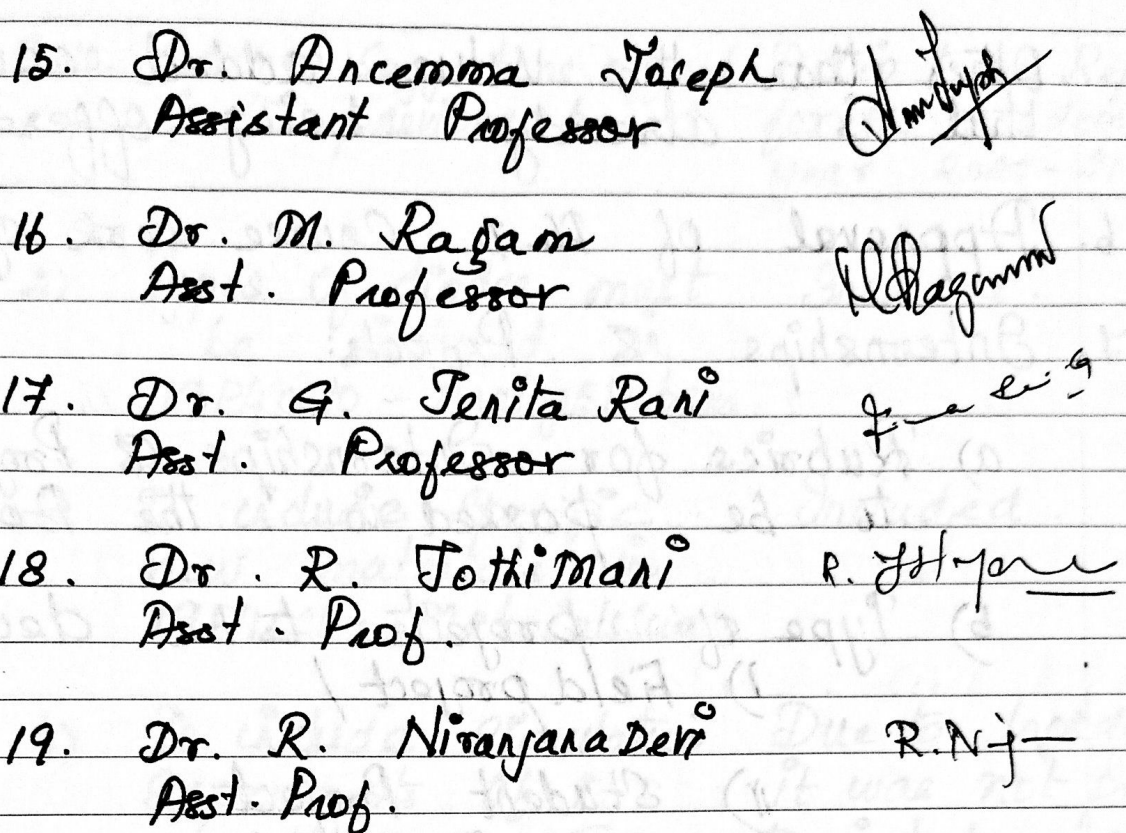 15. Dr. Ancemma Joseph
Assistant Professor
16. Dr. M. Ragam
Asst. Professor
17. Dr. G. Jenita Rani
Asst. Professor
18. Dr. R. Jothi Mani R.
Asst. Prof.
19. Dr. R. Niranjana Devi R.N
Asst. Prof.